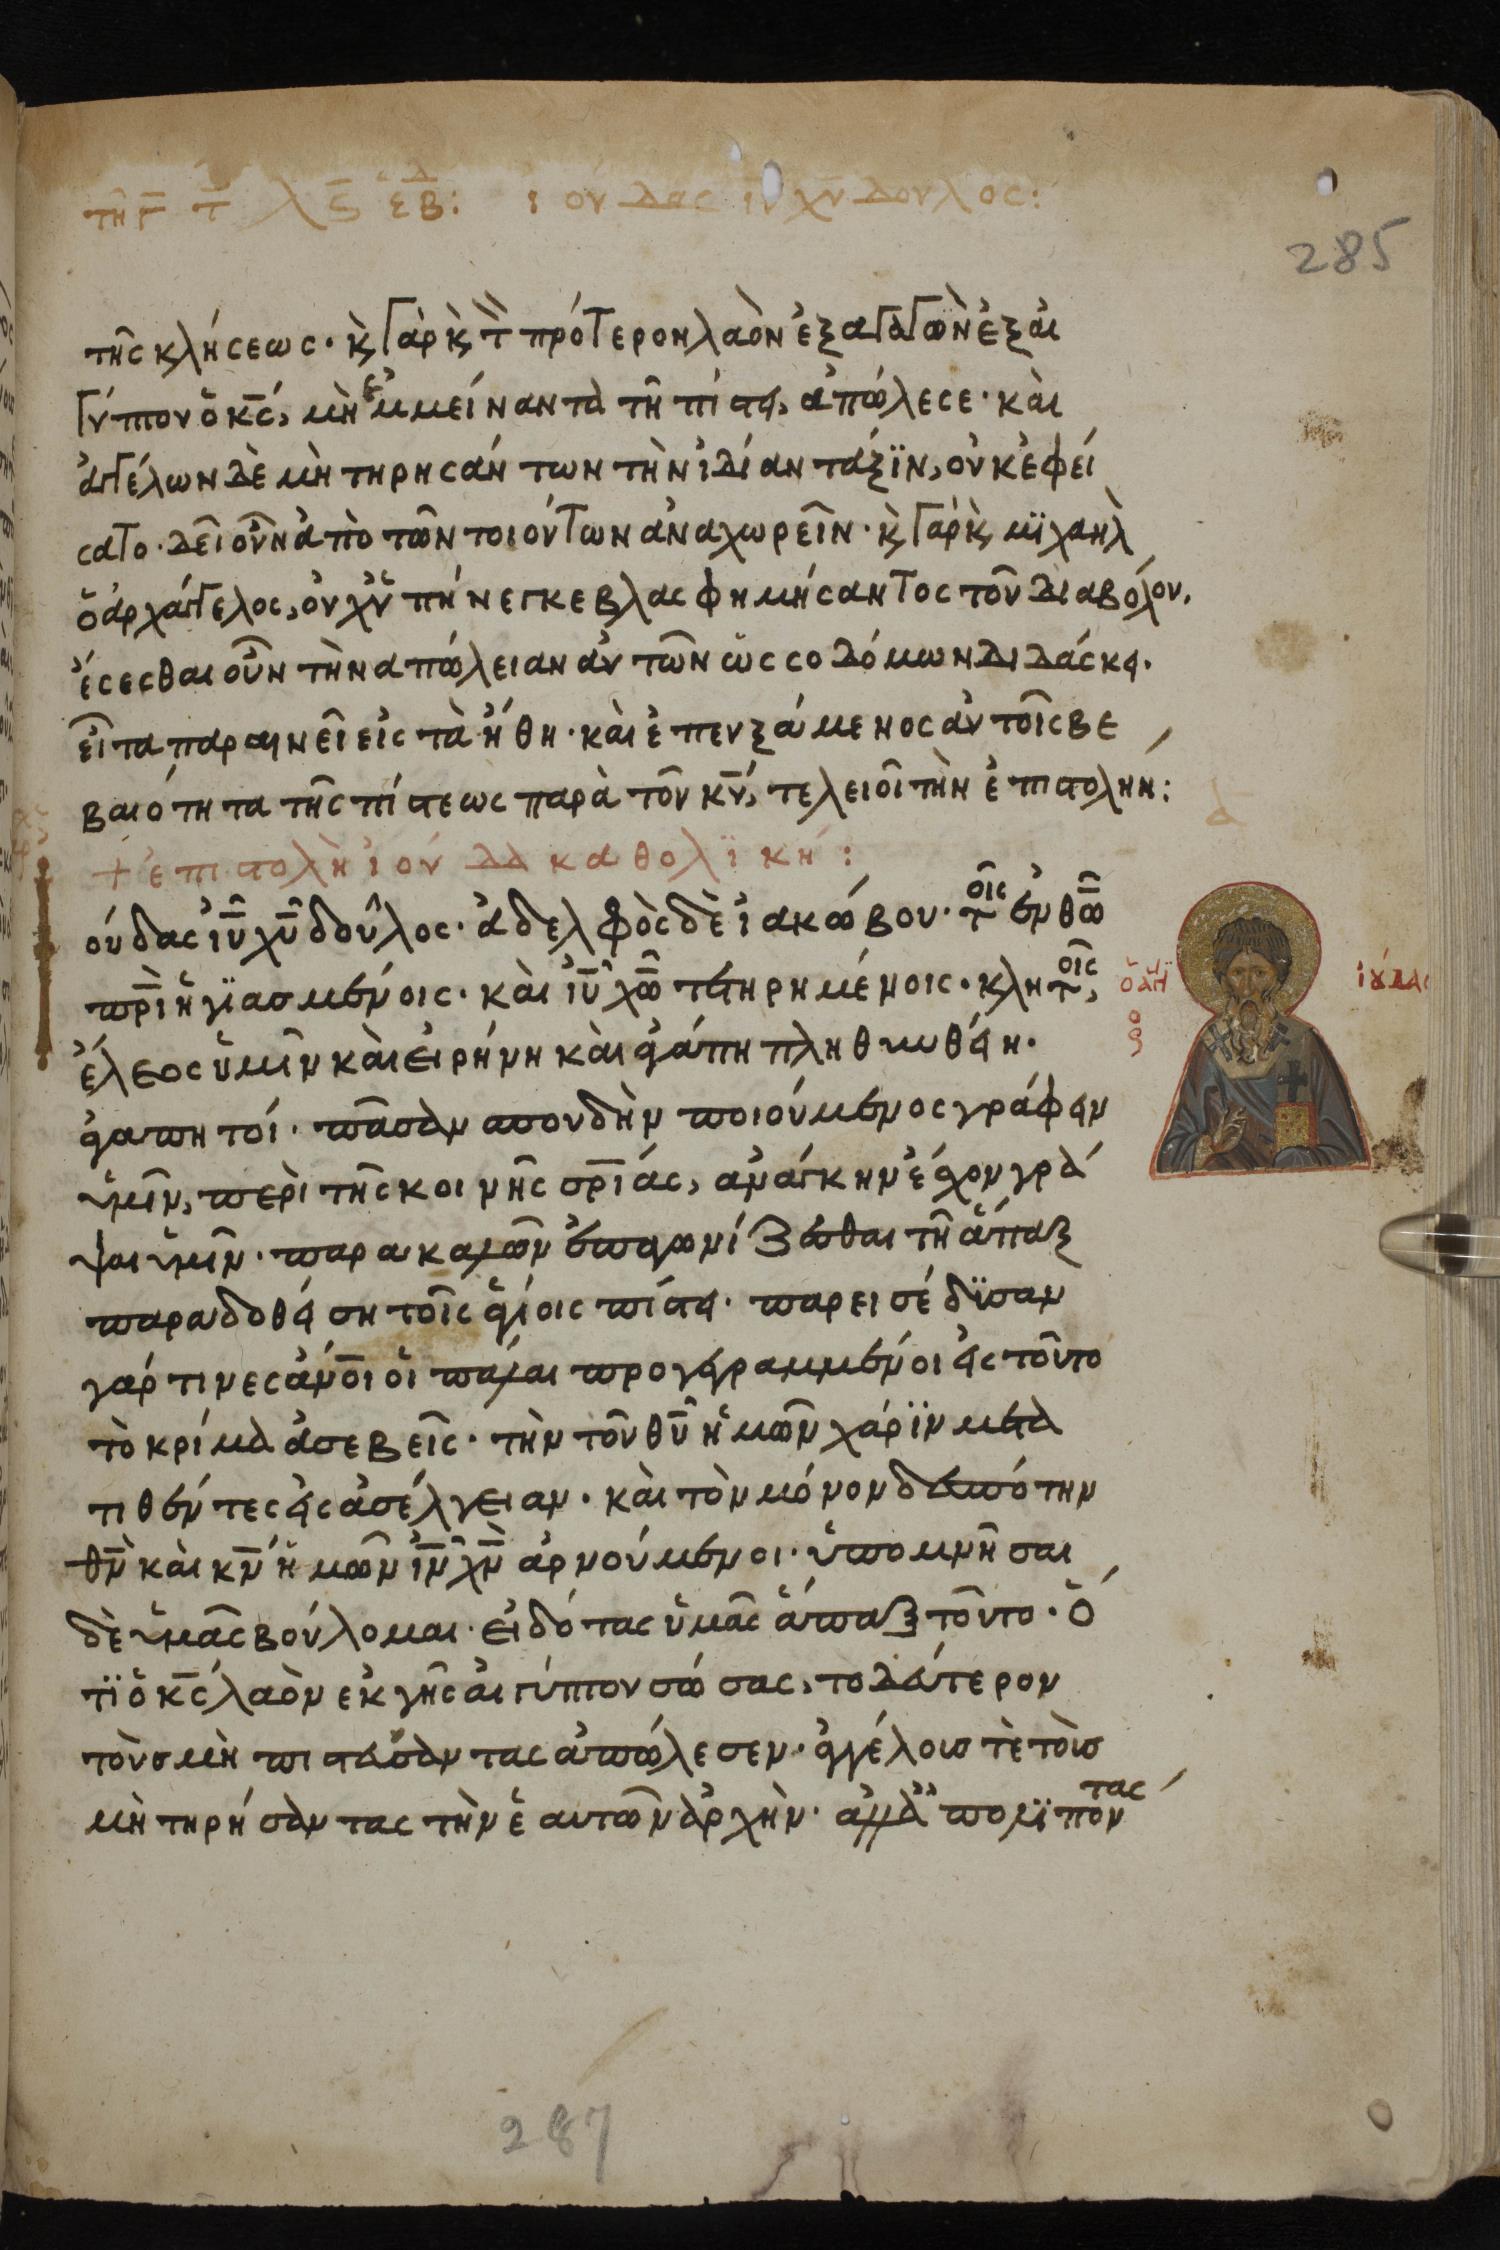 τῇ Γ τ λϛ ἑβδ: ἰούδας ἰυ χυ δουλος:
285
τῆς κλήσεως· κ̀ γὰρ κ̀ τ̀ πρότερον λαὸν ἐξαγαγὼν ἐξ αἰ
γύπτου ὁ κς, μὴ ἐμμείναντα τῆ πίστει, ἀπώλεσε· καὶ
ἀγγέλων δὲ μὴ τηρησάντων τὴν ἰδίαν τάξϊν, οὐκ ἐφεί
σατο· δεῖ οὖν ἀπὸ τῶν τοιούτων ἀναχωρεῖν· κ̀ γὰρ κ̀ μϊχαὴλ
ὁ ἀρχάγγελος, οὐχ ὑπήνεγκε βλασφημήσαντος τοῦ διαβόλου.
ἔσεσθαι οὖν τὴν απώλειαν αὐτῶν ὡς σοδόμων διδάσκει·
εἶτα παραινεῖ εἰς τὰ ἤθη· καὶ ἐπευξάμενος αὐτοῖς βε
βαιότητα τῆς πίστεως παρὰ τοῦ κυ, τελειοῖ τὴν ἐπιστολήν:
+ ἐπιστολὴ ἰούδα καθολϊκή:
ούδας ἰυ χυ δοῦλος· ἀδελφὸς δὲ ἰακώβου· τοῖς ἐν θω
πρὶ ἡγϊασμένοις· καὶ ἰυ χω τετηρημένοις· κλητοῖς,
ἔλεος ὑμῖν καὶ εἰρήνη καὶ ἀγάπη πληθυνθείη·
ἀγαπητοί· πᾶσαν σπουδὴν ποιούμενος γράφειν
ὑμῖν, περὶ τῆς κοινῆς σριάς, ἀνάγκην ἔσχον γρά
ψαι ὑμῖν· παρακαλῶν ἐπαγωνίζεσθαι τῆ ἅπαξ
παραδοθείση τοῖς ἁγίοις πίστει· παρεισέδϋσαν
γάρ τινες ἀνοι οἱ πάλαι προγεγραμμένοι εἰς τοῦτο
τὸ κρίμα ἀσεβεῖς· τὴν τοῦ θυ ἡμῶν χάρϊν μετα
τιθέντες εἰς ἀσέλγειαν· καὶ τὸν μόνον δεσπότην
θν καὶ κν ἡμῶν ἰν χν ἀρνούμενοι· ὑπομνῆσαι
δὲ ὑμᾶς βούλομαι· εἰδότας ὑμᾶς ἅπαξ τοῦτο· ὅ
τϊ ὁ κς λαὸν εκ γῆς αἰγύπτου σώσας, το δεύτερον
τοὺς μὴ πιστεύσαντας ἀπώλεσεν· ἀγγέλους τὲ τοὺς
μὴ τηρήσαντας τὴν ἑαυτῶν ἀρχὴν· ἀλλὰ ἀπολϊπόντας
ὁ ἅγι
ο
ς
ἰούδας
287